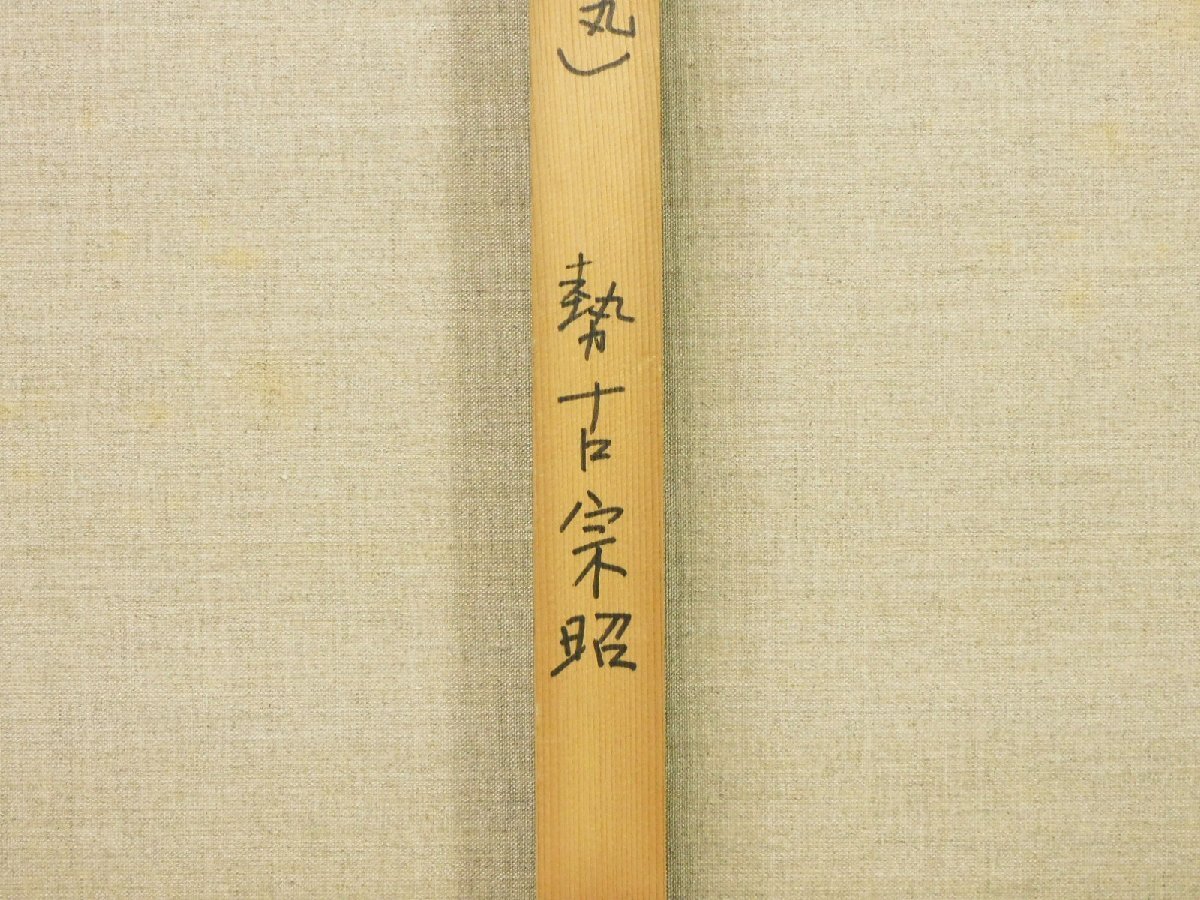 丸）
勢古宗昭